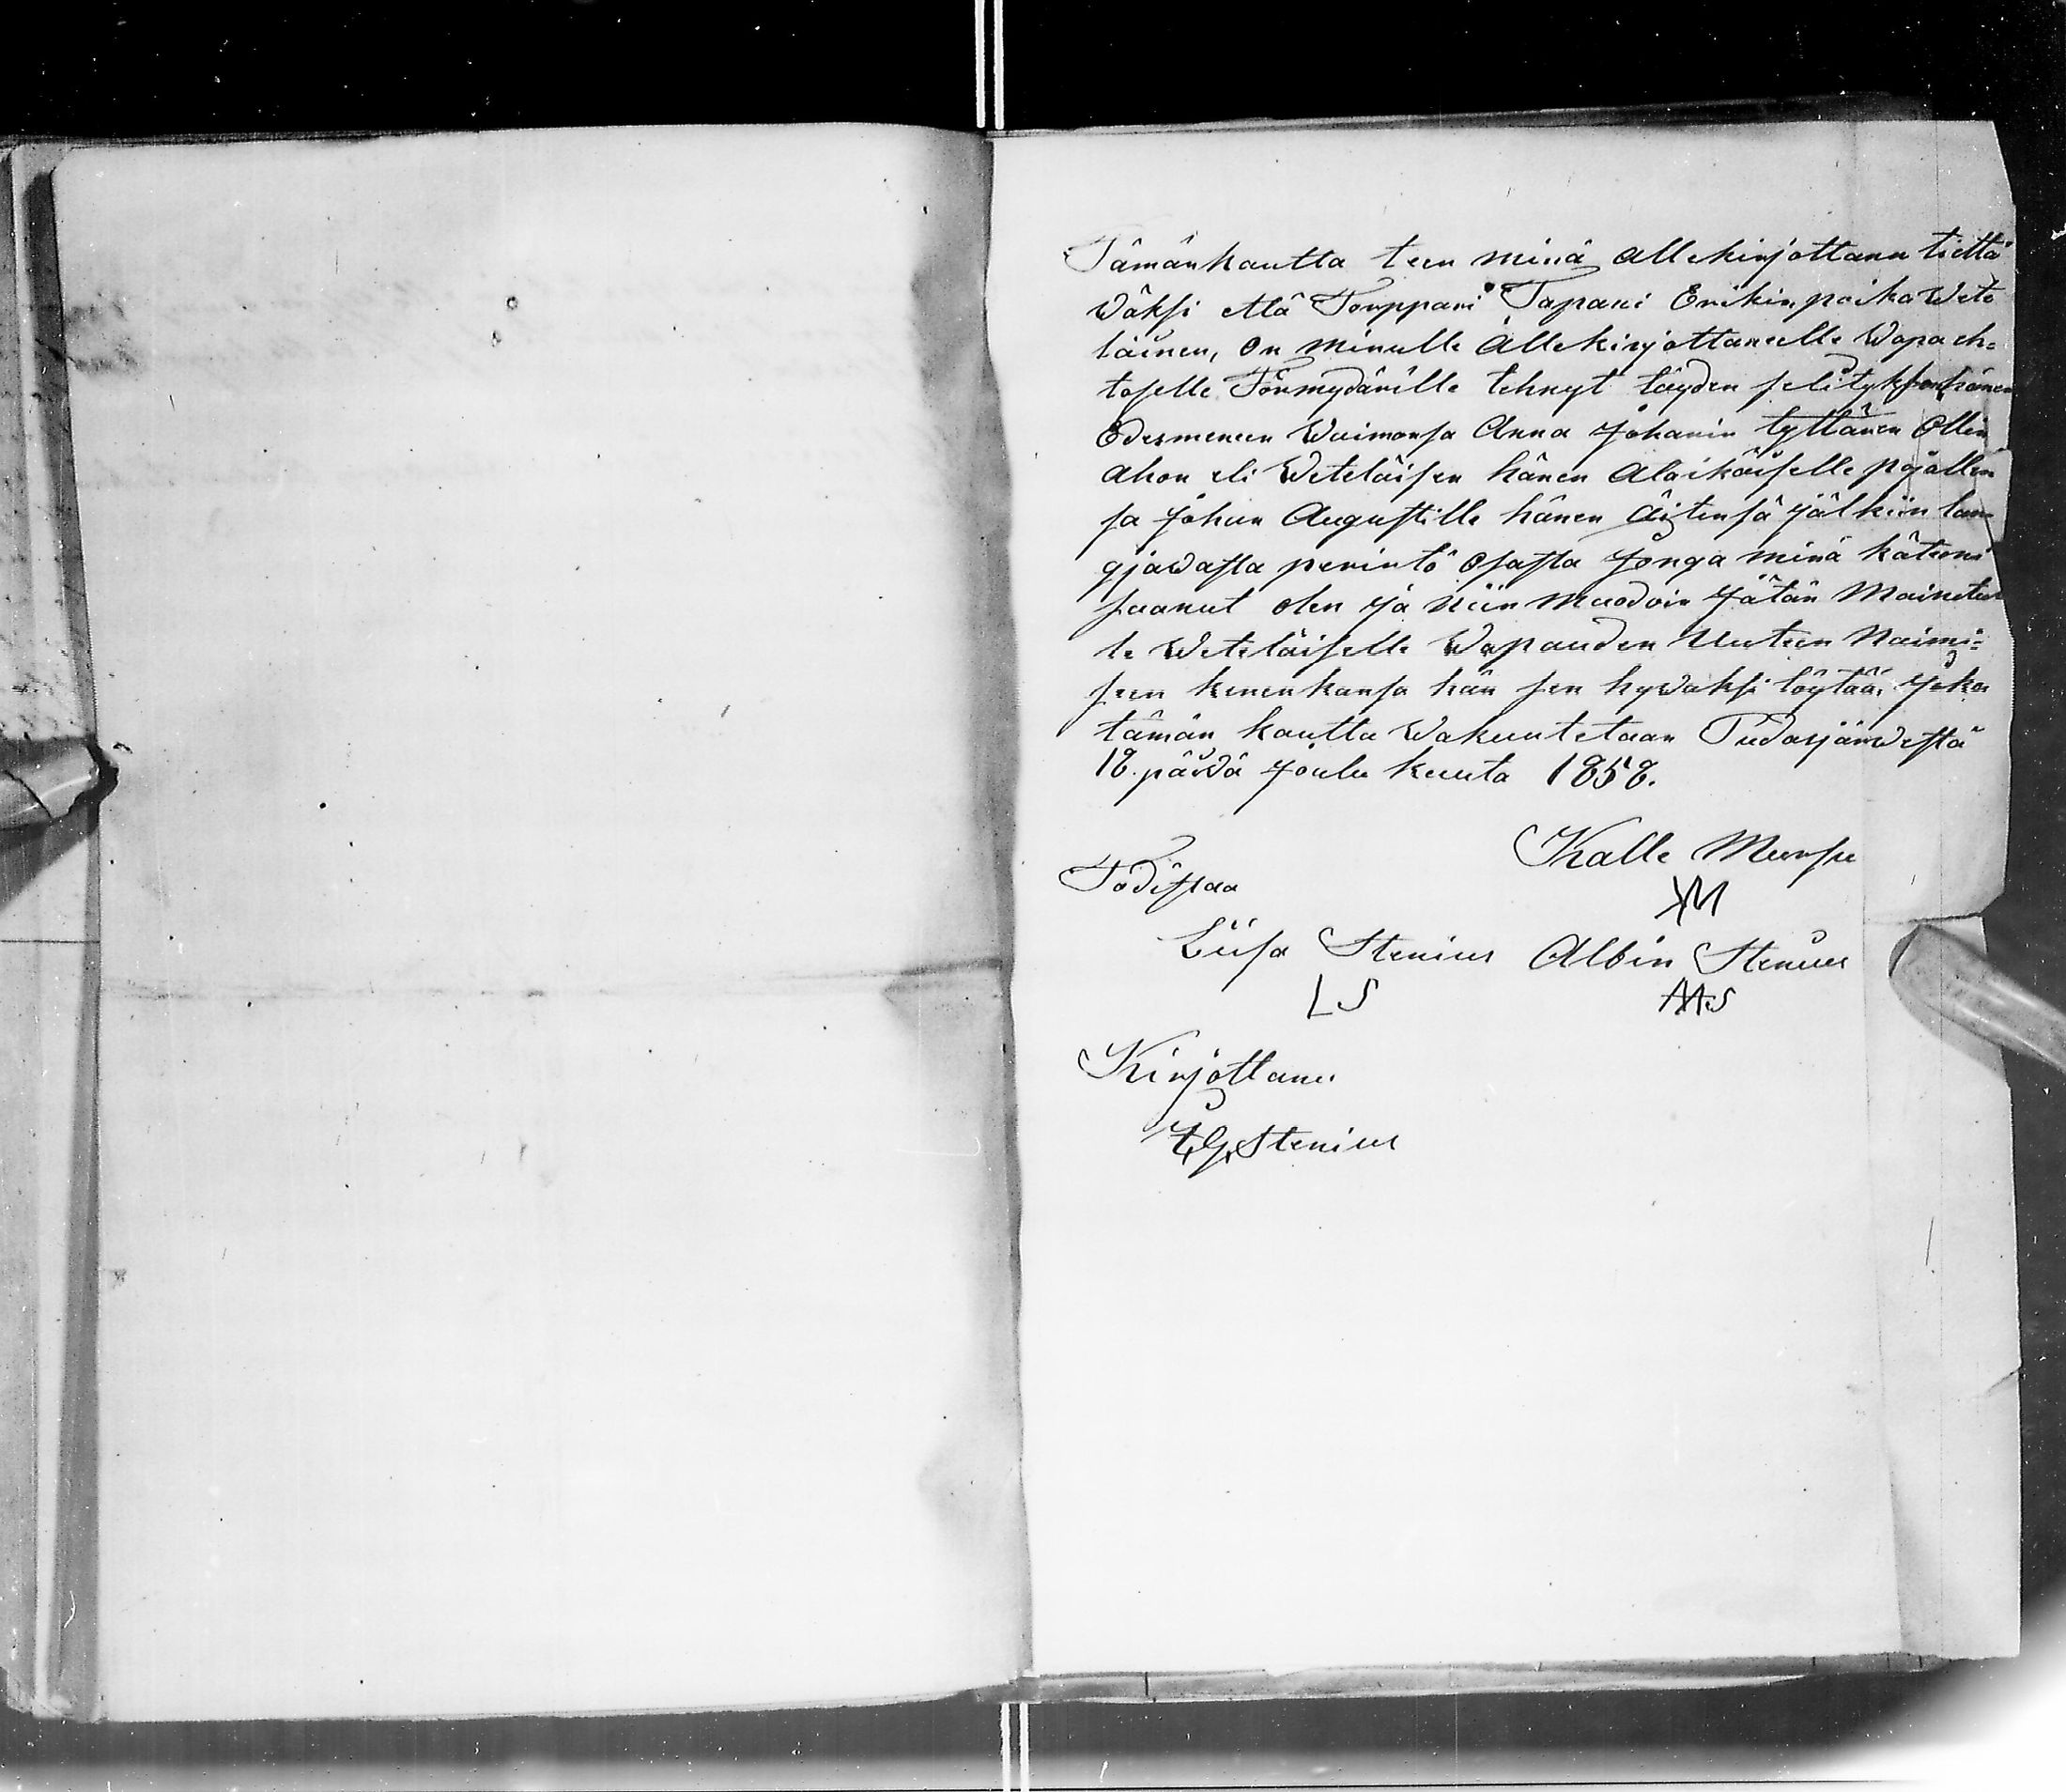 Tämänkautta teen minä allekirjottanu tiettä
wäksi että Torppari Tapani Erikinpoika Wete
läinen, on minulle Allekirjottaneelle Wapaeh=
toselle Förmydärille tehnyt täyden selityksen hänen
Edesmeneen Waimonsa Anna Johanin tyttären Ollin
ahon eli Weteläisen hänen Alaikäiselle pojallen
sa Johan Augustille hänen äitensä jälkiin lan
gjawasta perintö osasta Jonga minä käteeni
saanut olen ja niin muodoin Jätän Mainitul
le Weteläiselle Wapauden Uuteen Naimi=
seen kenenkansa hän sen hywäksi löytää, Joka
tämän kautta Wakuutetaan Pudasjärwestä
18. päiwä Joulu kuuta 1858.
Kalle Mursu
Todistaa
KM
Liisa Stenius Albin Stenius
LS
Kirjottanu
Stenius